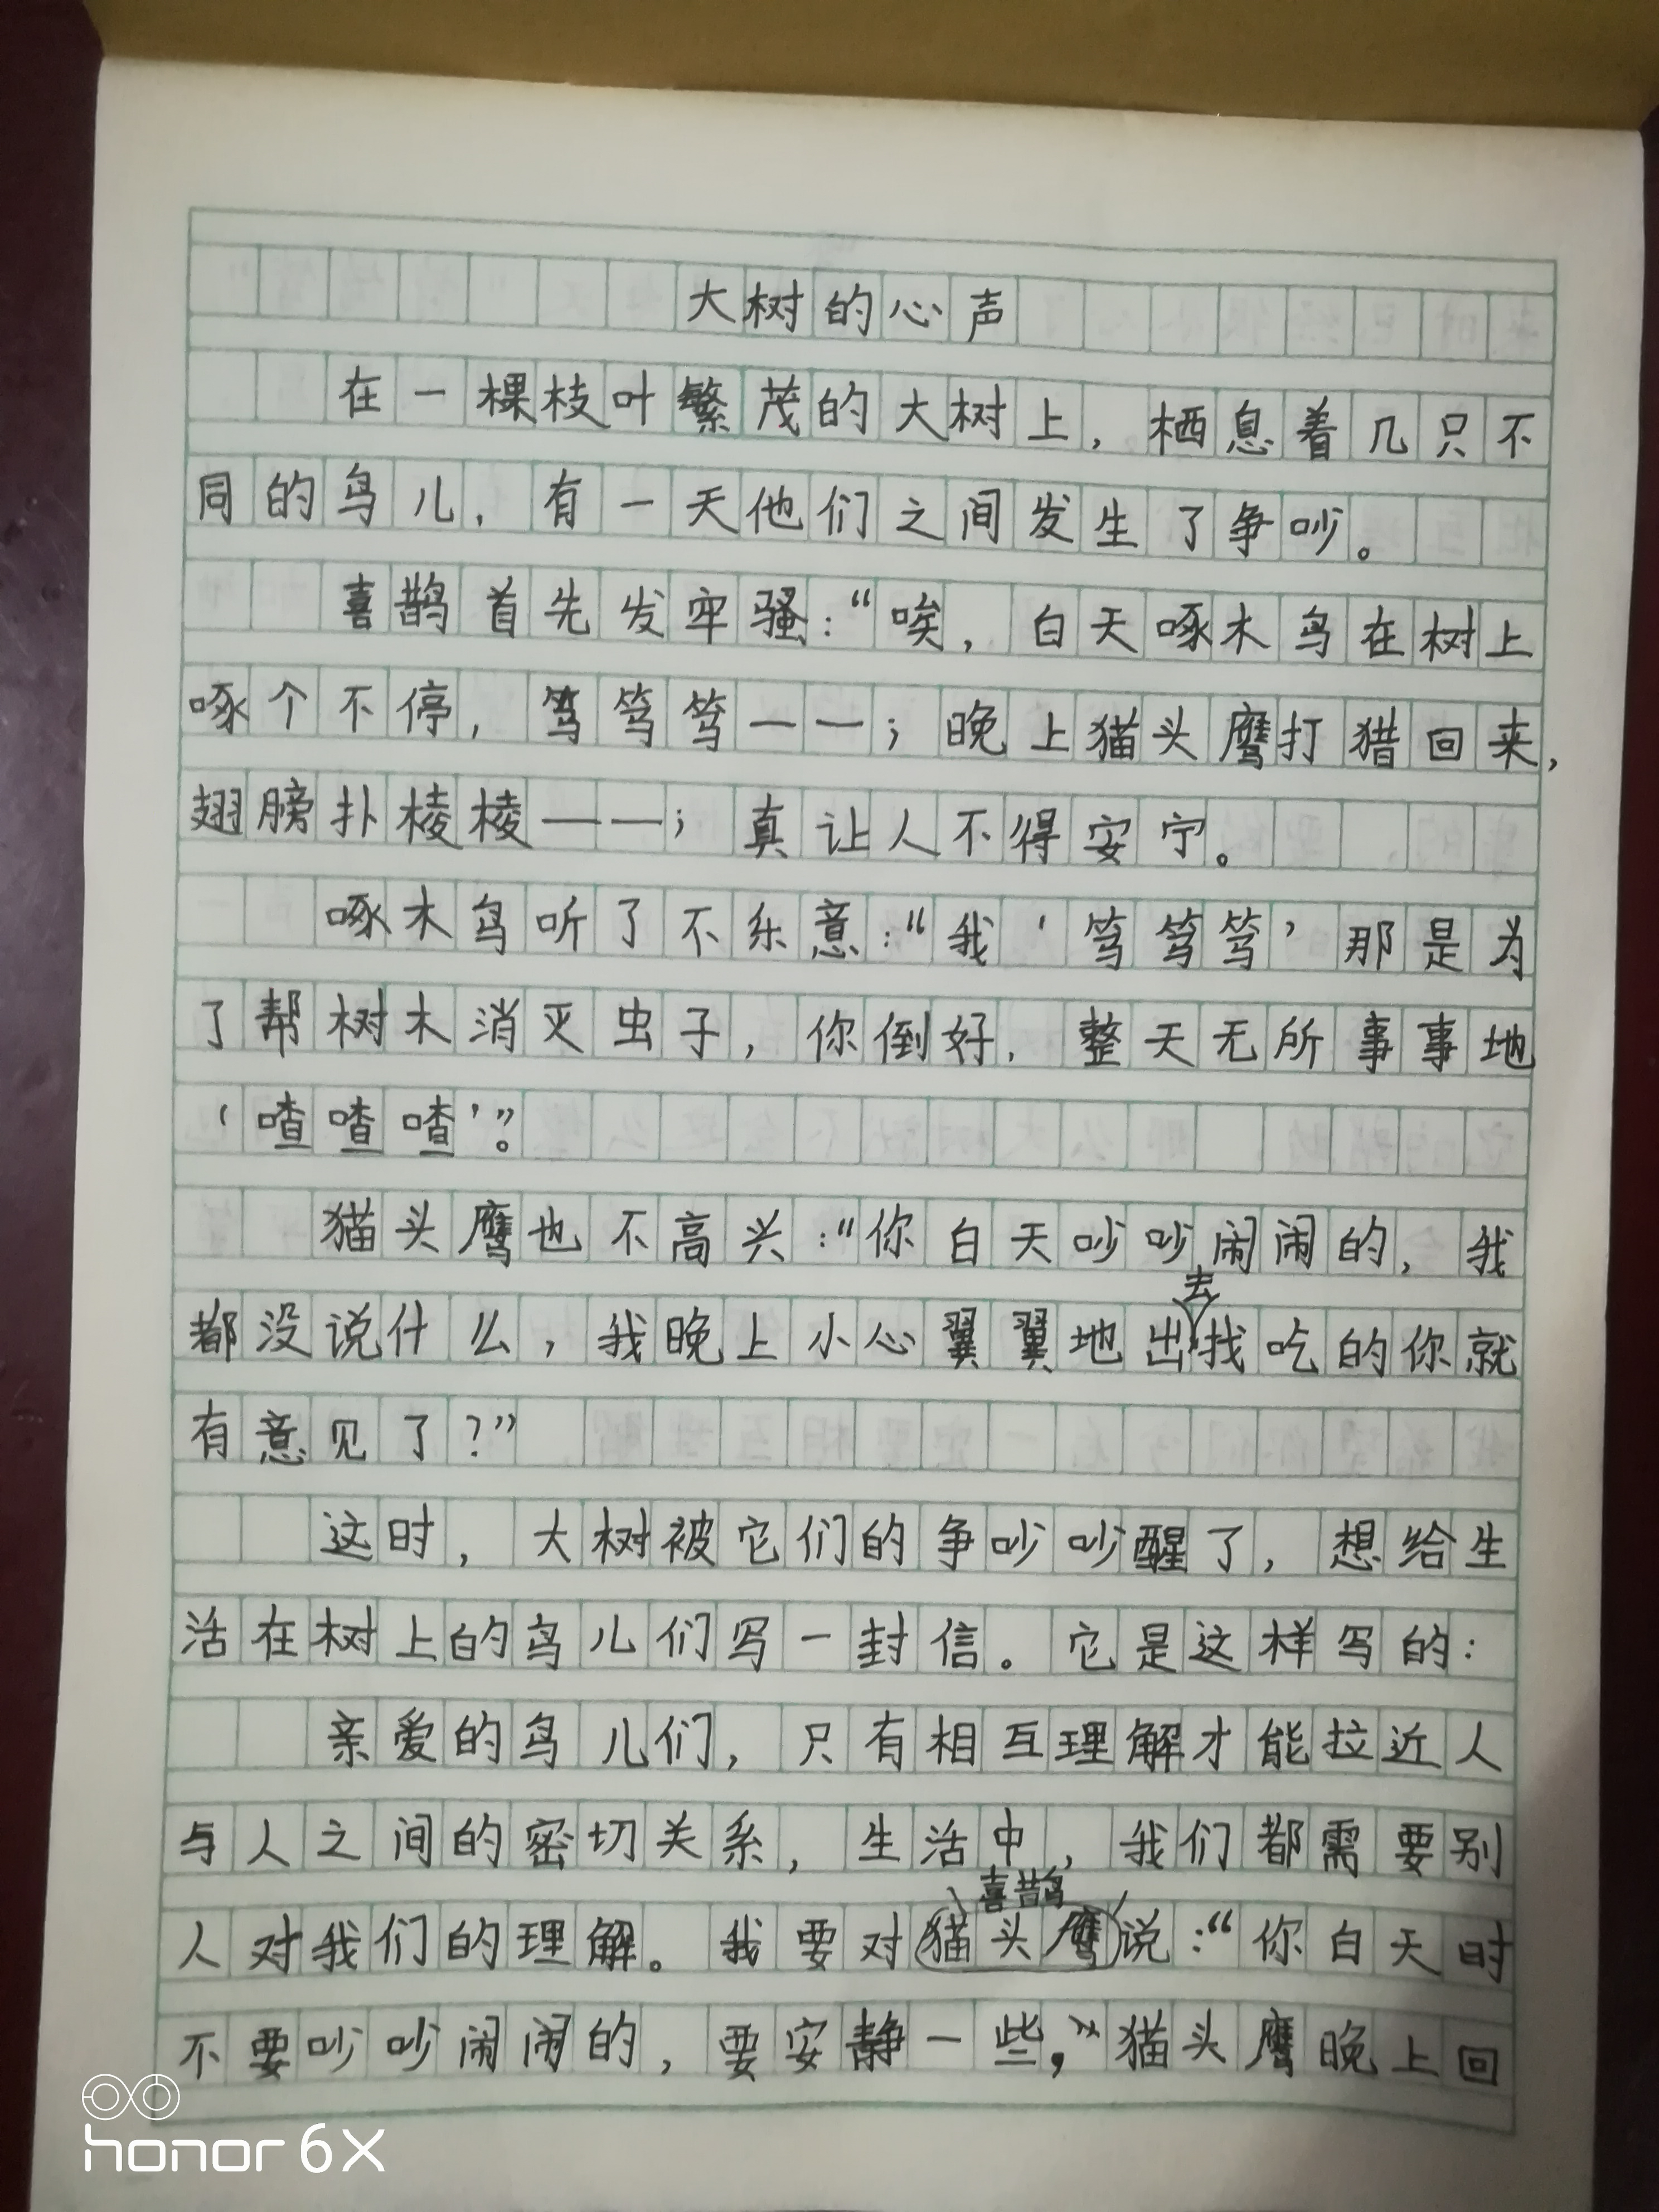 大树的心声
在一棵枝叶繁茂的大树上，栖息着几只不
同的鸟儿，有一天他们之间发生了争吵。
喜鹊首先发牢骚：“唉，白天啄木鸟在树上
啄个不停，笃笃笃——；晚上猫头鹰打猎回来，
翅膀扑棱棱——；真让人不得安宁。
啄木鸟听了不乐意：“我‘笃笃笃’那是为
了帮树木消灭虫子，你倒好，整天无所事事地
‘喳喳喳’”。
猫头鹰也不高兴：“你白天吵吵闹闹的，我
都没说什么，我晚上小心翼翼地出去找吃的你就
有意见了？”
这时，大树被它们的争吵吵醒了，想给生
活在树上的鸟儿们写一封信。它是这样写的：
亲爱的鸟儿们，只有相互理解才能拉近人
与人之间的密切关系，生活中，我们都需要别
喜鹊
人对我们的理解。我要对猫头鹰说：“你白天时
不要吵吵闹闹的，要安静一些，”猫头鹰晚上回
honor 6X